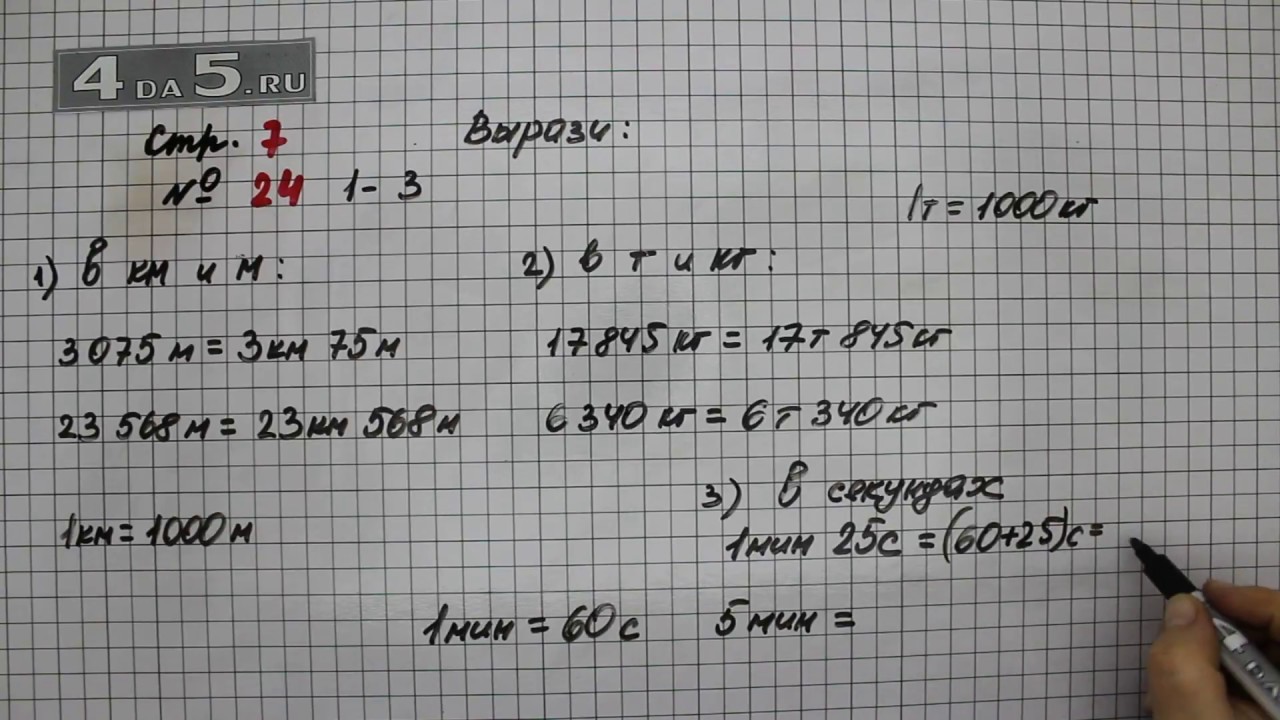 4 DA 5.RU
Стр. 7
№ 24 1-3
Вырази:
1т = 1000 кг
1) в км и м:
3 075 м = 3 км 75 м
23 568 м = 23 км 568 м
1 км = 1000 м
2) в т и кг:
17 845 кг = 17 т 845 кг
6 340 кг = 6 т 340 кг
3) в секундах
1 мин 25 с = (60+25) с =
1 мин = 60 с
5 мин =